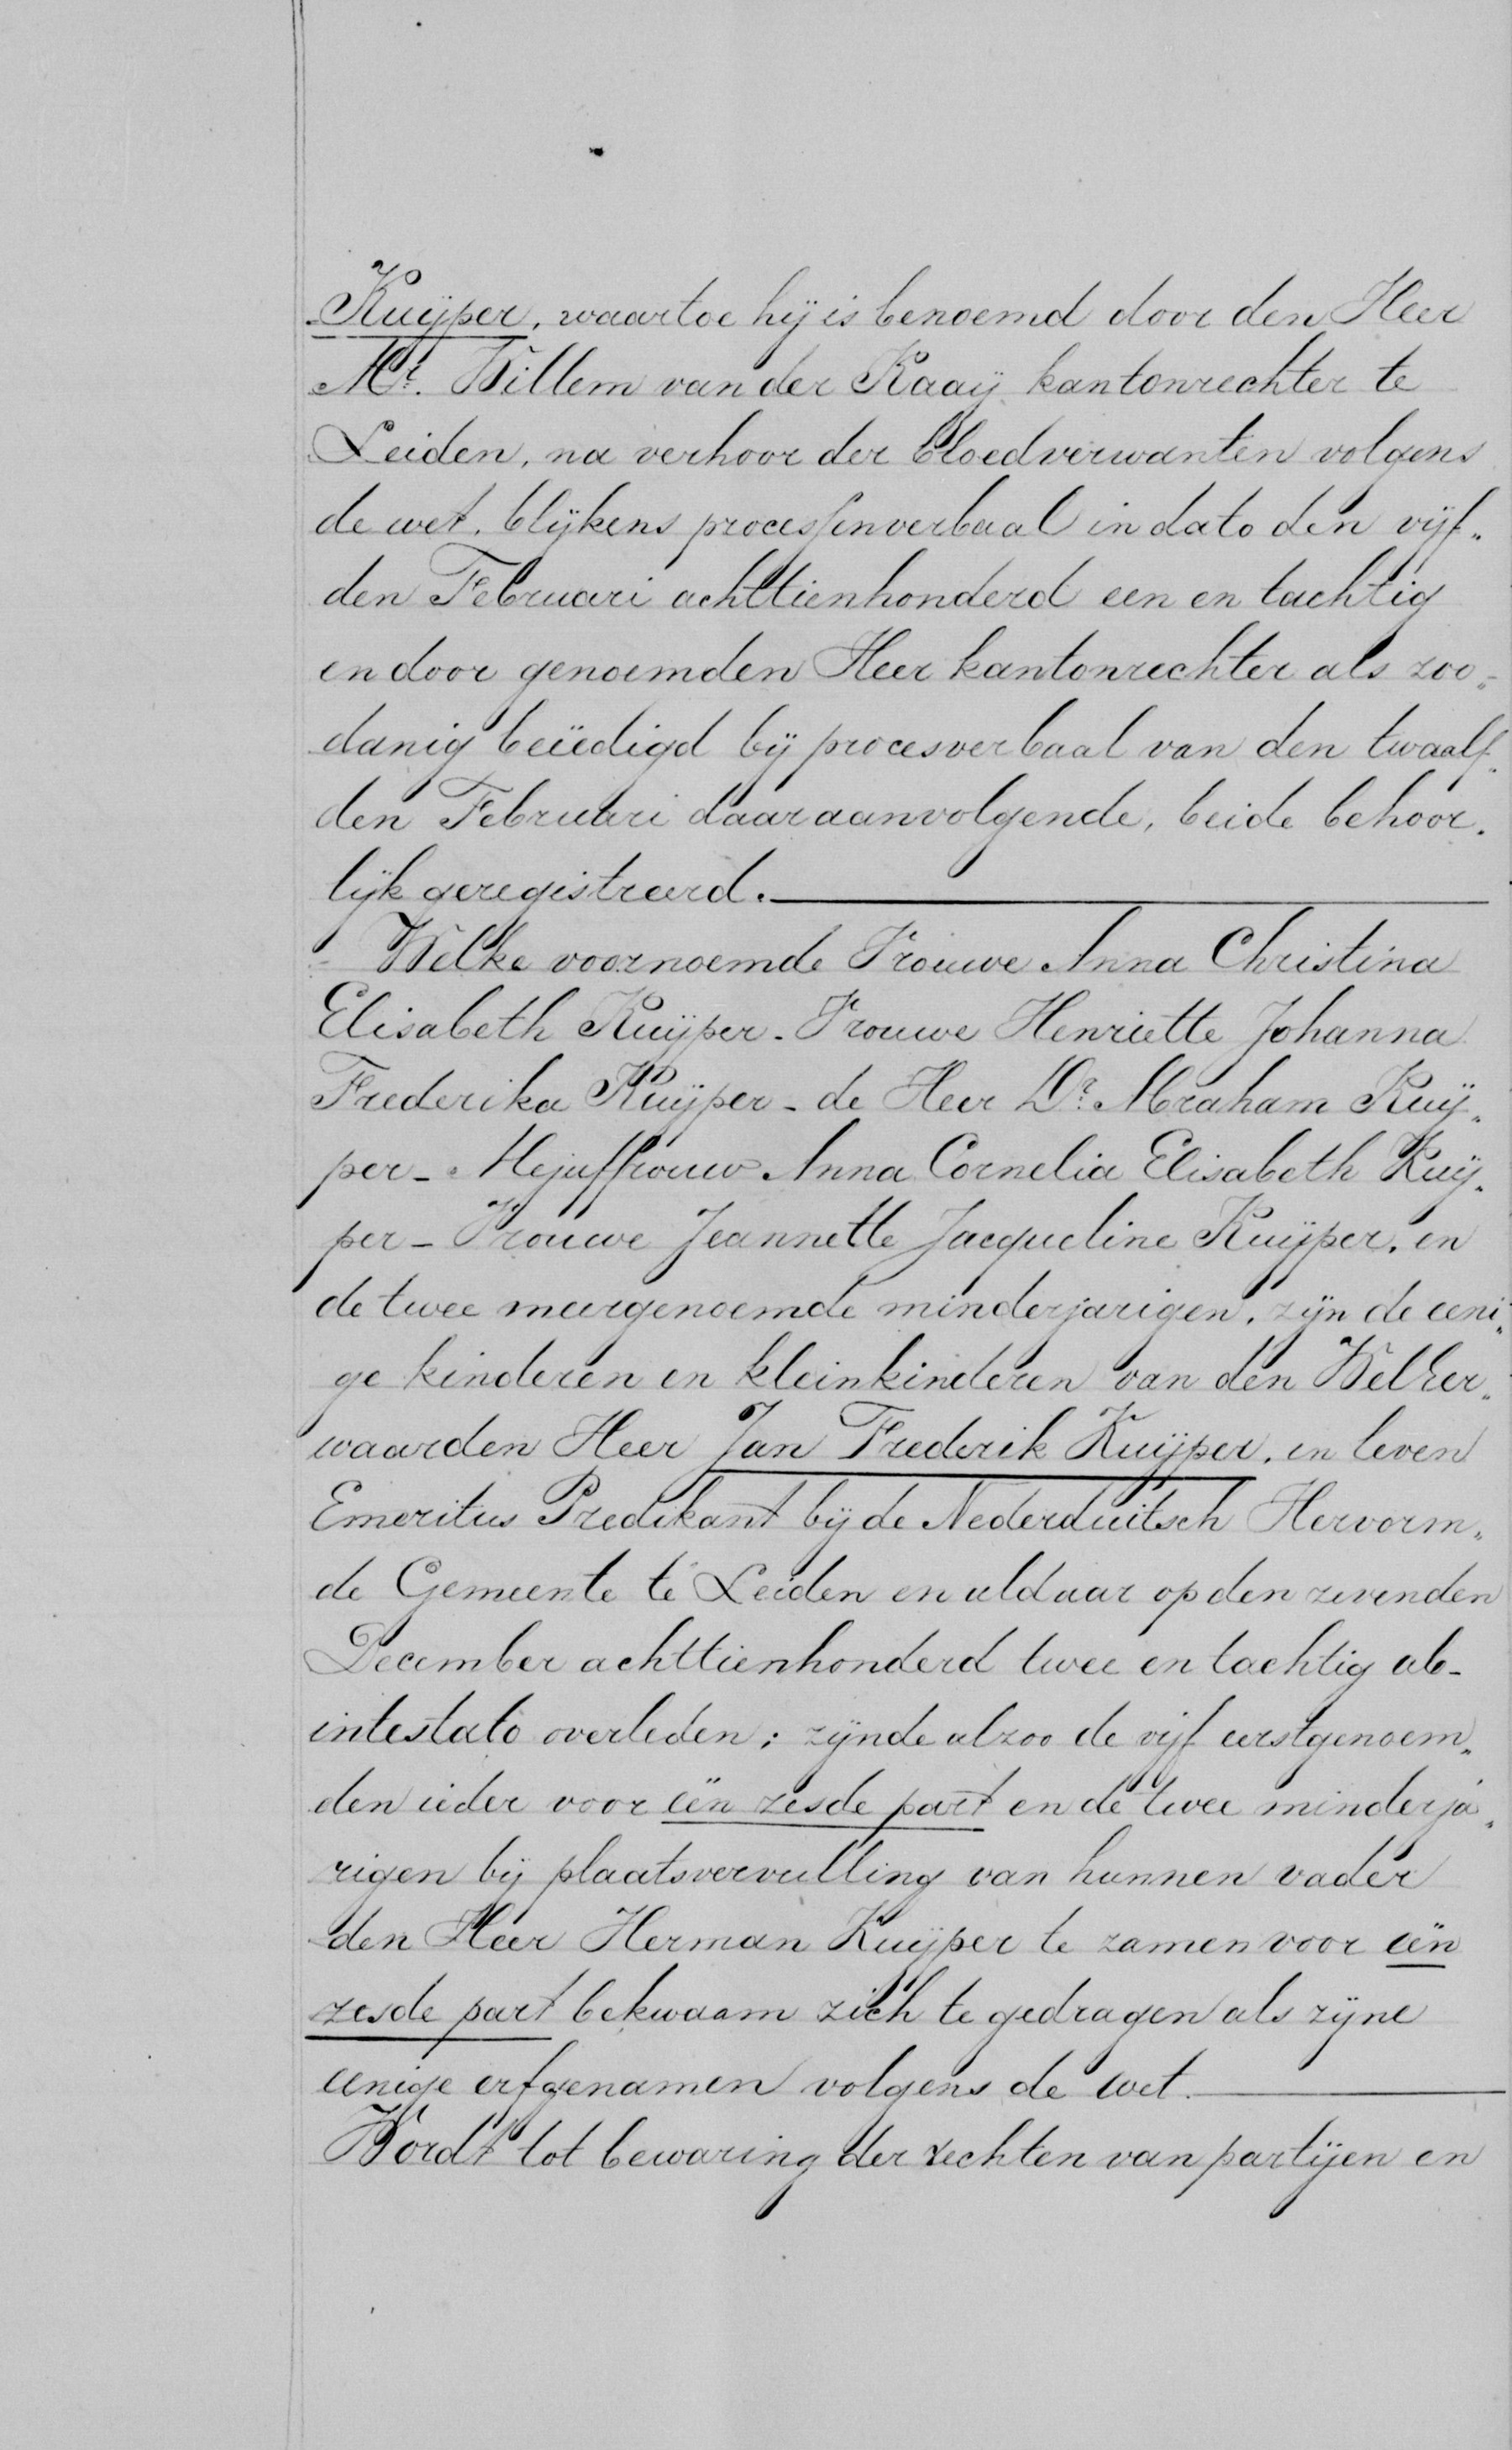 Kuijper, waartoe hij is benoemd door den Heer
Mr. Willem van der Kaaij kantonrechter te
Leiden, na verhoor der bloedverwanten volgens
de wet, blijkens processenverbaal in dato den vijf„
den Februari achttienhonderd een en tachtig
en door genoemden Heer kantonrechter als zoo„
danig beëedigd bij procesverbaal van den twaalf„
den Februari daaraanvolgende, beide behoor„
lijk geregistreerd.
Welke voornoemde Vrouwe Anna Christina
Elisabeth Kuijper - Vrouwe Henriette Johanna
Frederika Kuijper - de Heer Dr. Abraham Kuij„
per - Mejuffrouw Anna Cornelia Elisabeth Kuij„
per - Vrouwe Jeannette Jacqueline Kuijper, en
de twee meergenoemde minderjarigen, zijn de eeni„
ge kinderen en kleinkinderen van den WelEer„
waarden Heer Jan Frederik Kuijper, in leven
Emeritus Predikant bij de Nederduitsch Hervorm„
de Gemeente te Leiden en aldaar op den zevenden
December achttienhonderd twee en tachtig ab-
intestato overleden; zijnde alzoo de vijf eerstgenoem„
den ieder voor één zesde part en de twee minderja„
rigen bij plaatsvervulling van hunnen vader
den Heer Herman Kuijper te zamen voor één
zesde part bekwaam zich te gedragen als zijne
eenige erfgenamen volgens de wet.
Wordt tot bewaring der rechten van partijen en